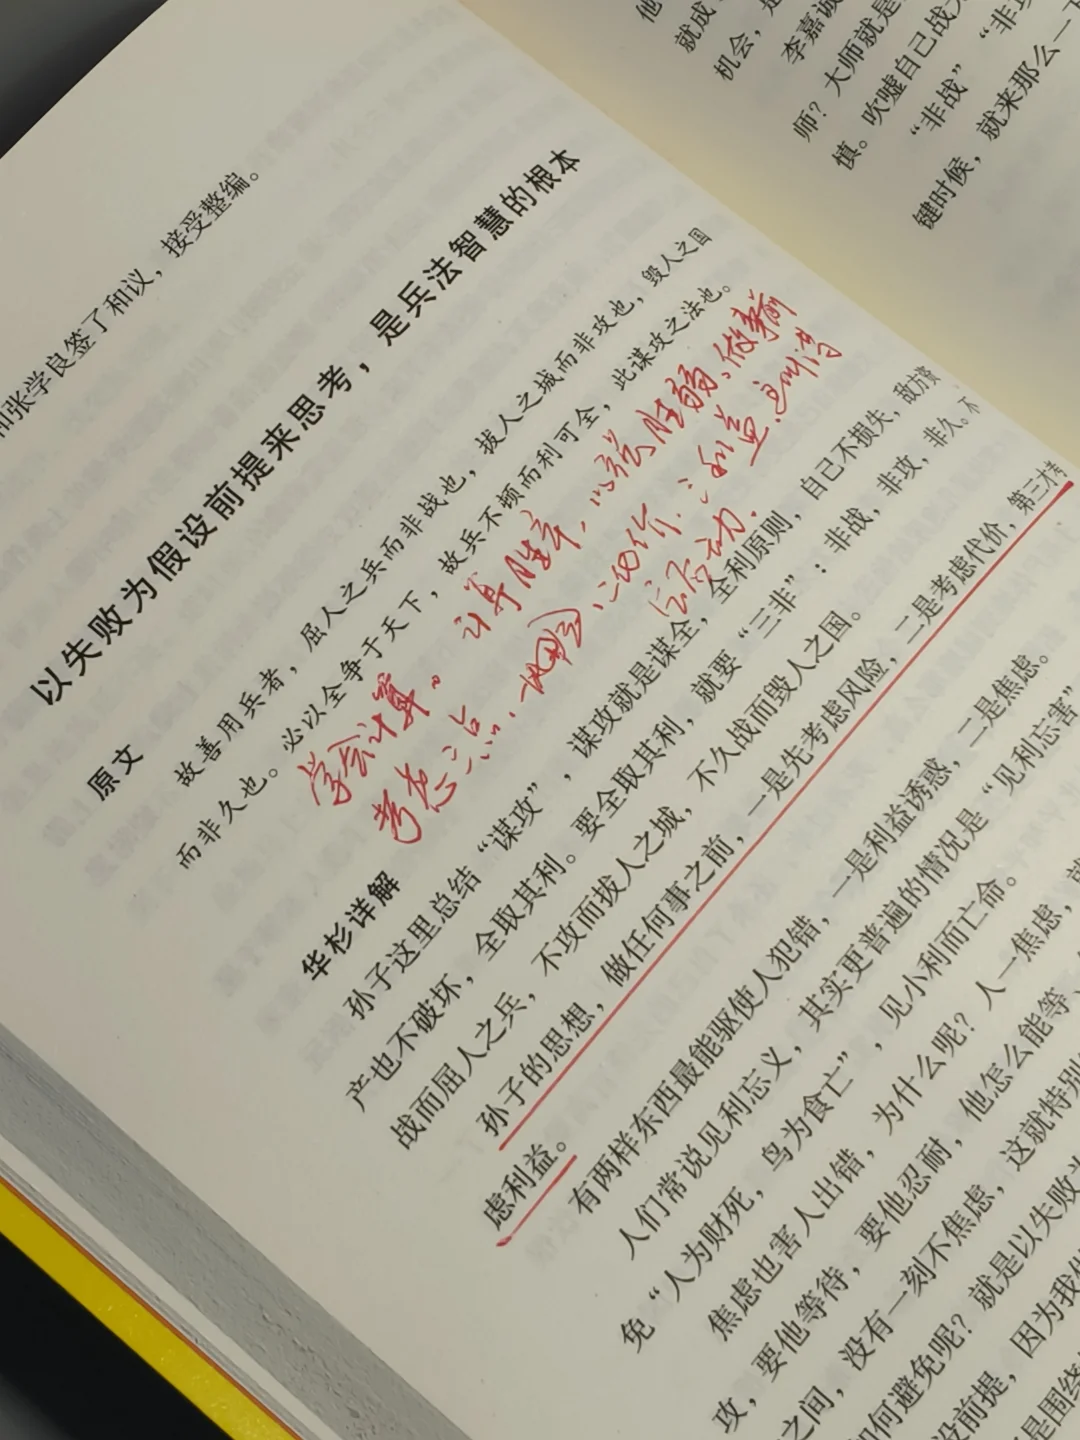 和张学良签了和议，接受整编。
以失败为假设前提来思考，是兵法智慧的根本
原文
故善用兵者，屈人之兵而非战也，拔人之城而非攻也，毁人之国
而非久也。必以全争于天下，故兵不顿而利可全，此谋攻之法也。
学会计算。计算胜率，以强胜弱、做事前
考虑三点，
华杉详解
孙子这里总结“谋攻”，谋攻就是谋全，全利原则，自己不损失，敌方资
产也不破坏，全取其利。要全取其利，就要“三非”：非战，非攻，非久。不
战而屈人之兵，不攻而拔人之城，不久战而毁人之国。
孙子的思想，做任何事之前，一是先考虑风险，二是考虑代价，第三才考
虑利益。
有两样东西最能驱使人犯错，一是利益诱惑，二是焦虑。
人们常说见利忘义，其实更普遍的情况是“见利忘害”
免“人为财死，鸟为食亡”，见小利而亡命。
焦虑也害人出错，为什么呢？人一焦虑，就
，要他等待，要他忍耐，他怎么能等
攻，之间，没有一刻不焦虑，这就特别
如何避免呢？就是以失败为
设前提，因为我们
是围绕
他
就成
机会，是
李嘉诚
师？大师就是“非攻
慎。吹嘘自己战
“非战”
键时候，就来那么一下